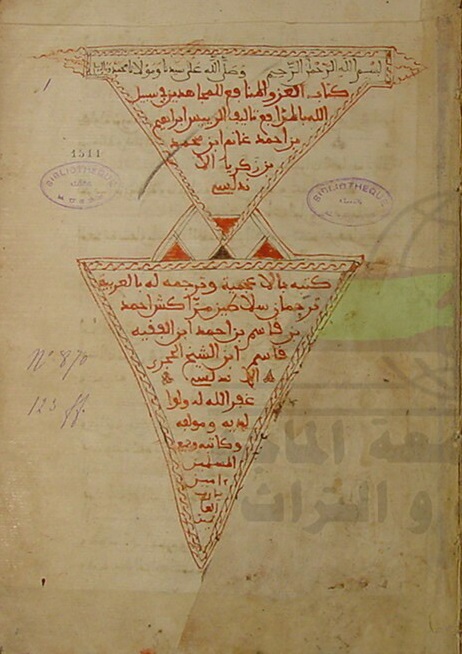 بسم الله الرحمن الرحيم وصلى الله على سيدنا ومولانا محمد
كتاب العز والمنافع للمجاهدين في سبيل
الله بالمدافع تأليف الرييس ابراهيم
بن احمد غانم بن محمد
بن زكريا الا
ندلسي
1511
BIBLIOTHEQUE
BIBLIOTHEQUE
كتبه بالاعجمية وترجمه له بالعربية
ترجمان سلاطين مراكش احمد
بن قاسم بن احمد ابن الفقيه
قاسم ابن الشيخ الحجري
الاندلسي
غفر الله له ولوا
لديه ومولفه
وكاتبه وجميع
المسلمين
امين
يا رب
العا
لمين
N° 870
123 ff.
و التراث